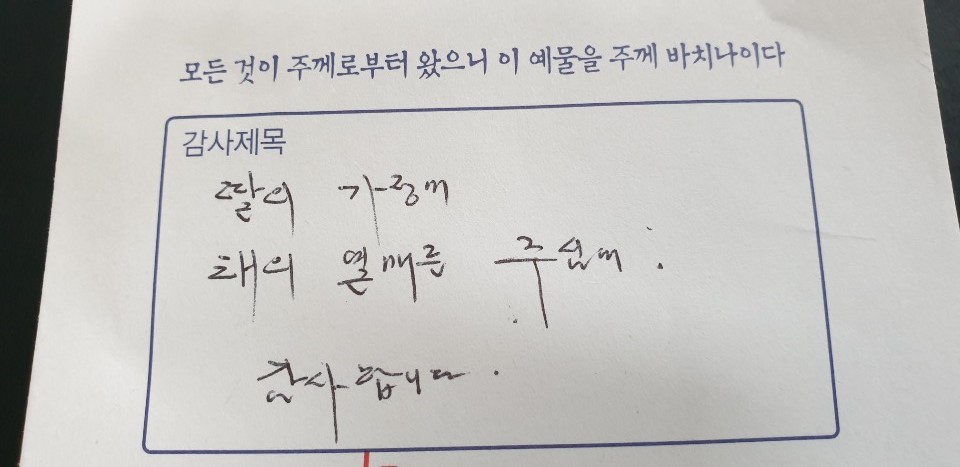 모든 것이 주께로부터 왔으니 이 예물을 주께 바치나이다
감사제목
딸의 가정에
태의 열매를 주심에
감사합니다.